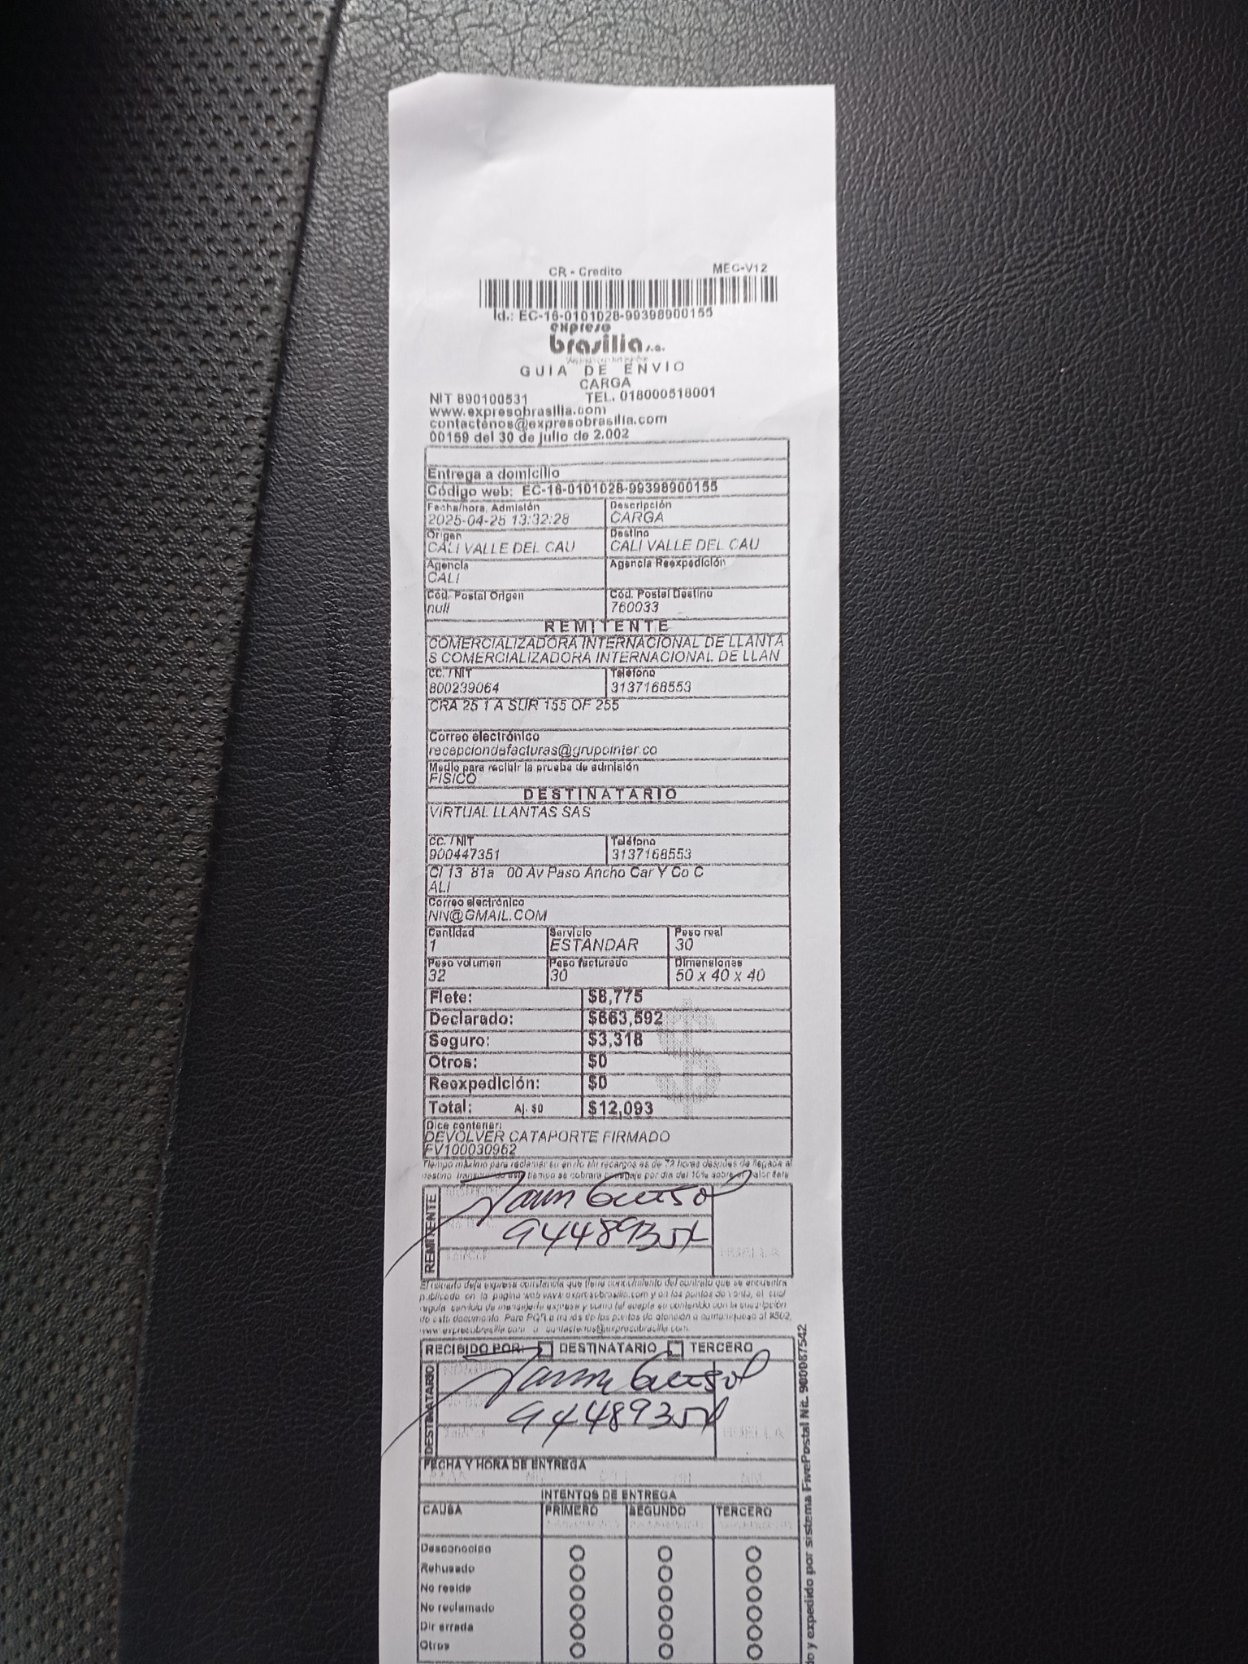 CR - Credito MEC-V12
Id.: EC-16-0101028-99398900155
expreso
brasilia s.a.
GUIA DE ENVIO
CARGA
NIT 890100531 TEL. 018000518001
www.expresobrasilia.com
contactenos@expresobrasilia.com
00159 del 30 de julio de 2.002
Entrega a domicilio
Código web: EC-16-0101028-99398900155
Fecha/hora, Admisión Descripción
2025-04-25 13:32:28 CARGA
Origen Destino
CALI VALLE DEL CAU CALI VALLE DEL CAU
Agencia Agencia Reexpedición
CALI
Cód. Postal Origen Cód. Postal Destino
null 760033
REMITENTE
COMERCIALIZADORA INTERNACIONAL DE LLANTA
S COMERCIALIZADORA INTERNACIONAL DE LLAN
CC. / NIT Teléfono
800239064 3137168553
CRA 25 1 A SUR 155 OF 255
Correo electrónico
recepciondefacturas@grupointer.co
Medio para recibir la prueba de admisión
FISICO
DESTINATARIO
VIRTUAL LLANTAS SAS
CC. / NIT Teléfono
900447351 3137168553
Cl 13 81a 00 Av Paso Ancho Car Y Co C
ALI
Correo electrónico
NN@GMAIL.COM
Cantidad Servicio Peso real
1 ESTANDAR 30
Peso volumen Peso facturado Dimensiones
32 30 50 x 40 x 40
Flete: $8,775
Declarado: $663,592
Seguro: $3,318
Otros: $0
Reexpedición: $0
Total: Aj. $0 $12,093
Dice contener:
DEVOLVER CATAPORTE FIRMADO
FV100030962
Tiempo máximo para reclamar su envío sin recargos es de 72 horas después de llegada al
REMITENTE
HUELLA
El usuario deja expresa constancia que tiene conocimiento del contrato que se encuentra
publicado en la pagina web www.expresobrasilia.com y en los puntos de venta, el cual
RECIBIDO POR: DESTINATARIO TERCERO
DESTINATARIO
HUELLA
FECHA Y HORA DE ENTREGA
INTENTOS DE ENTREGA
CAUSA PRIMERO SEGUNDO TERCERO
Desconocido
Rehusado
No reside
No reclamado
Dir errada
Otros
o y expedido por sistema FivePostal Nit. 900087542